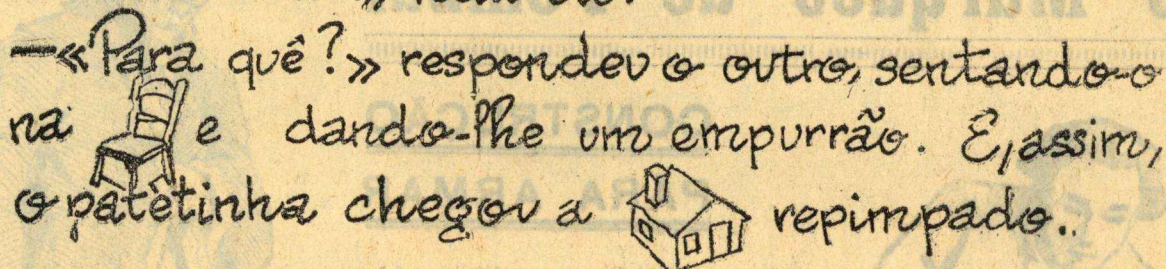 —«Para quê?» respondeu o outro, sentando-o
na e dando-lhe um empurrão. E, assim,
o patètinha chegou a repimpado..